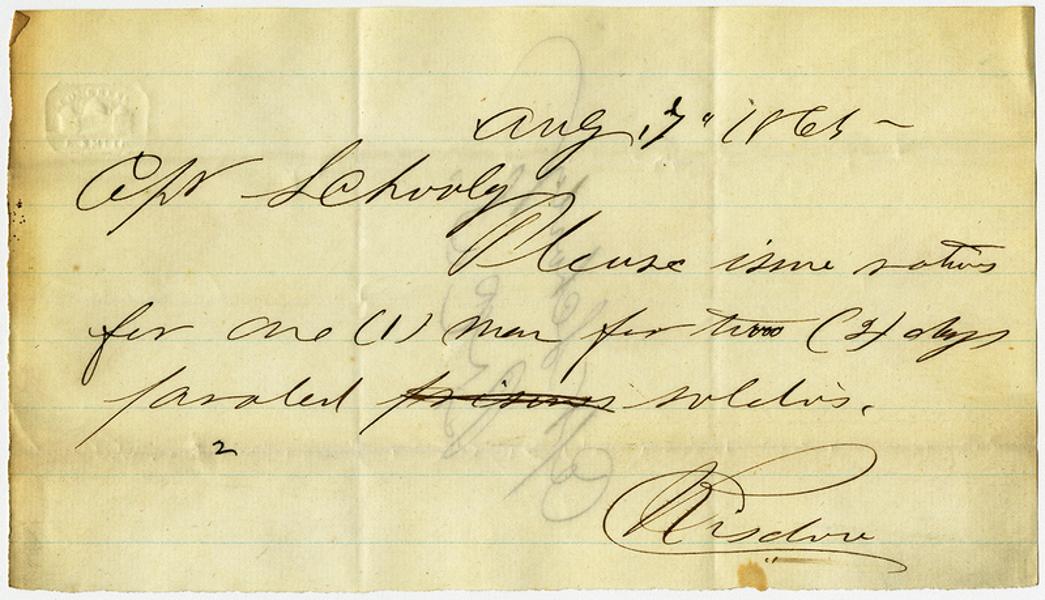 Aug 7" 1865 -
Cpt Schooly
Please issue rations
for one (1) man for two (2) days
paroled prisoners soldiers.
2
Risdon